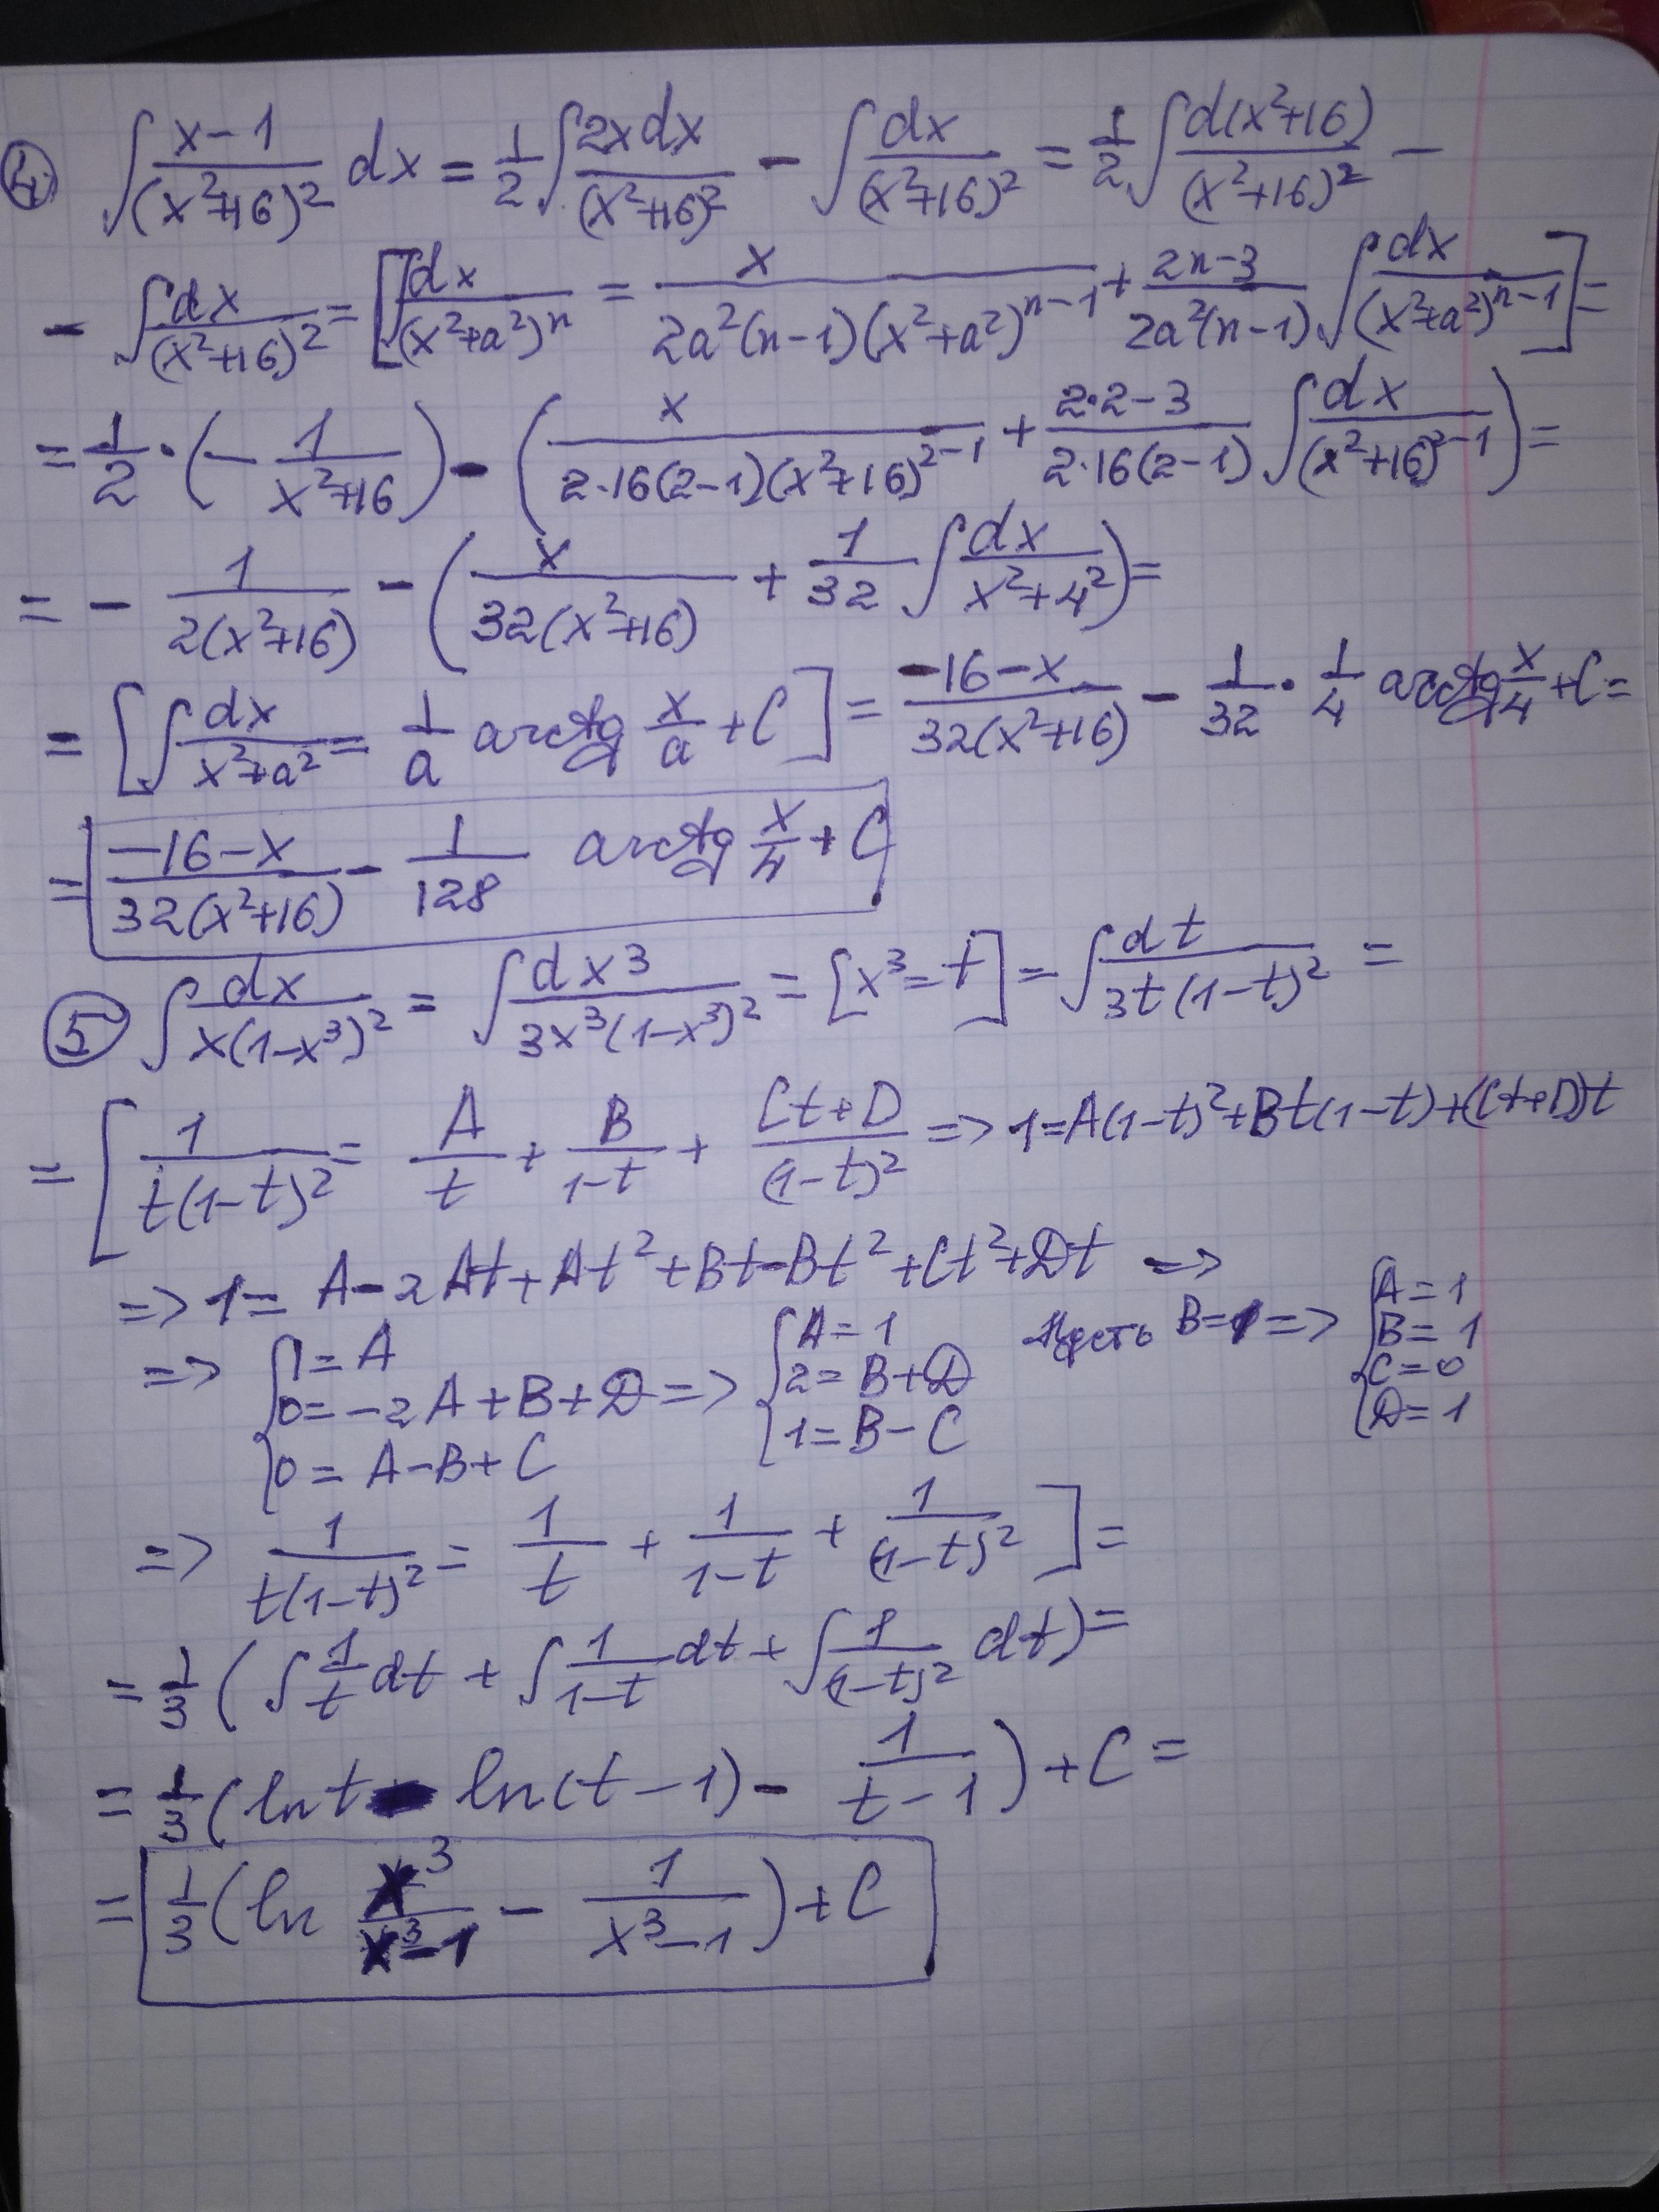 ④ ∫ (x-1)/(x²+16)² dx = 1/2 ∫ 2xdx/(x²+16)² - ∫ dx/(x²+16)² = 1/2 ∫ d(x²+16)/(x²+16)² -
- ∫ dx/(x²+16)² = [∫ dx/(x²+a²)ⁿ = x/(2a²(n-1)(x²+a²)ⁿ⁻¹) + (2n-3)/(2a²(n-1)) ∫ dx/(x²+a²)ⁿ⁻¹] =
= 1/2 · (- 1/(x²+16)) - (x/(2·16(2-1)(x²+16)²⁻¹) + (2·2-3)/(2·16(2-1)) ∫ dx/(x²+16)²⁻¹) =
= - 1/(2(x²+16)) - (x/(32(x²+16)) + 1/32 ∫ dx/(x²+4²)) =
= [∫ dx/(x²+a²) = 1/a arctg x/a + C] = (-16-x)/(32(x²+16)) - 1/32 · 1/4 arctg x/4 + C =
= (-16-x)/(32(x²+16)) - 1/128 arctg x/4 + C
⑤ ∫ dx/(x(1-x³)²) = ∫ dx³/(3x³(1-x³)²) = [x³=t] = ∫ dt/(3t(1-t)²) =
= [1/(t(1-t)²) = A/t + B/(1-t) + (Ct+D)/(1-t)² => 1=A(1-t)²+Bt(1-t)+(Ct+D)t
=> 1 = A-2At+At²+Bt-Bt²+Ct²+Dt =>
=> {1=A; 0=-2A+B+D; 0=A-B+C => {A=1; 2=B+D; 1=B-C Пусть B=1 => {A=1; B=1; C=0; D=1
=> 1/(t(1-t)²) = 1/t + 1/(1-t) + 1/(1-t)²] =
= 1/3 (∫ 1/t dt + ∫ 1/(1-t) dt + ∫ 1/(1-t)² dt) =
= 1/3 (ln t - ln(t-1) - 1/(t-1)) + C =
= 1/3 (ln x³/(x³-1) - 1/(x³-1)) + C